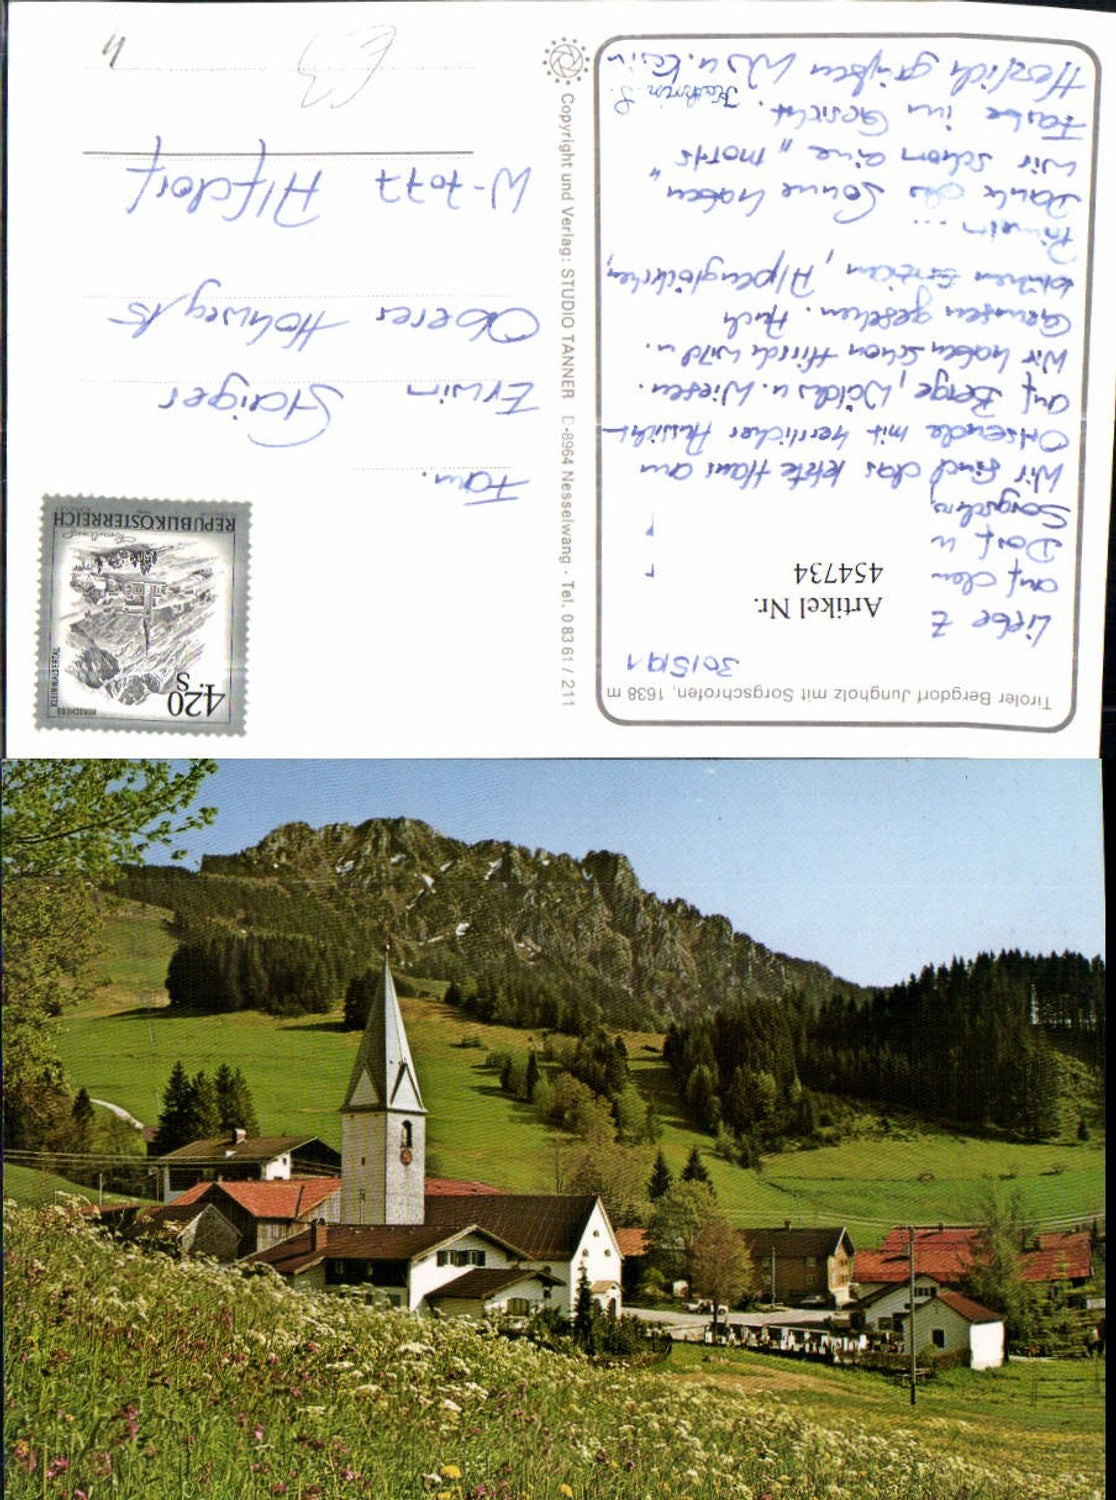 Tiroler Bergdorf Jungholz mit Sorgschrofen, 1638 m
30/5/91
Artikel Nr.
454734
Liebe E
auf dem
Dorf u
Wir sind das letzte Haus am
Ortsende mit herrlicher Aussicht
auf Berge, Wälder u. Wiesen.
Wir haben schon Hirsche Wild u.
Gemsen gesehen. Auch
blühen Enzian, Alpenglöckchen,
Primeln...
Dank der Sonne haben
wir schon eine "
Farbe im Gesicht.
Herzlich grüßen
Kathrin S.
Copyright und Verlag: STUDIO TANNER D-8964 Nesselwang · Tel. 0 83 61 / 211
4.20
S
HIRSCHEGG
KLEINWALSERTAL
REPUBLIK ÖSTERREICH
Fam.
Erwin Staiger
Oberer Hohweg 15
W-7077 Alfdorf